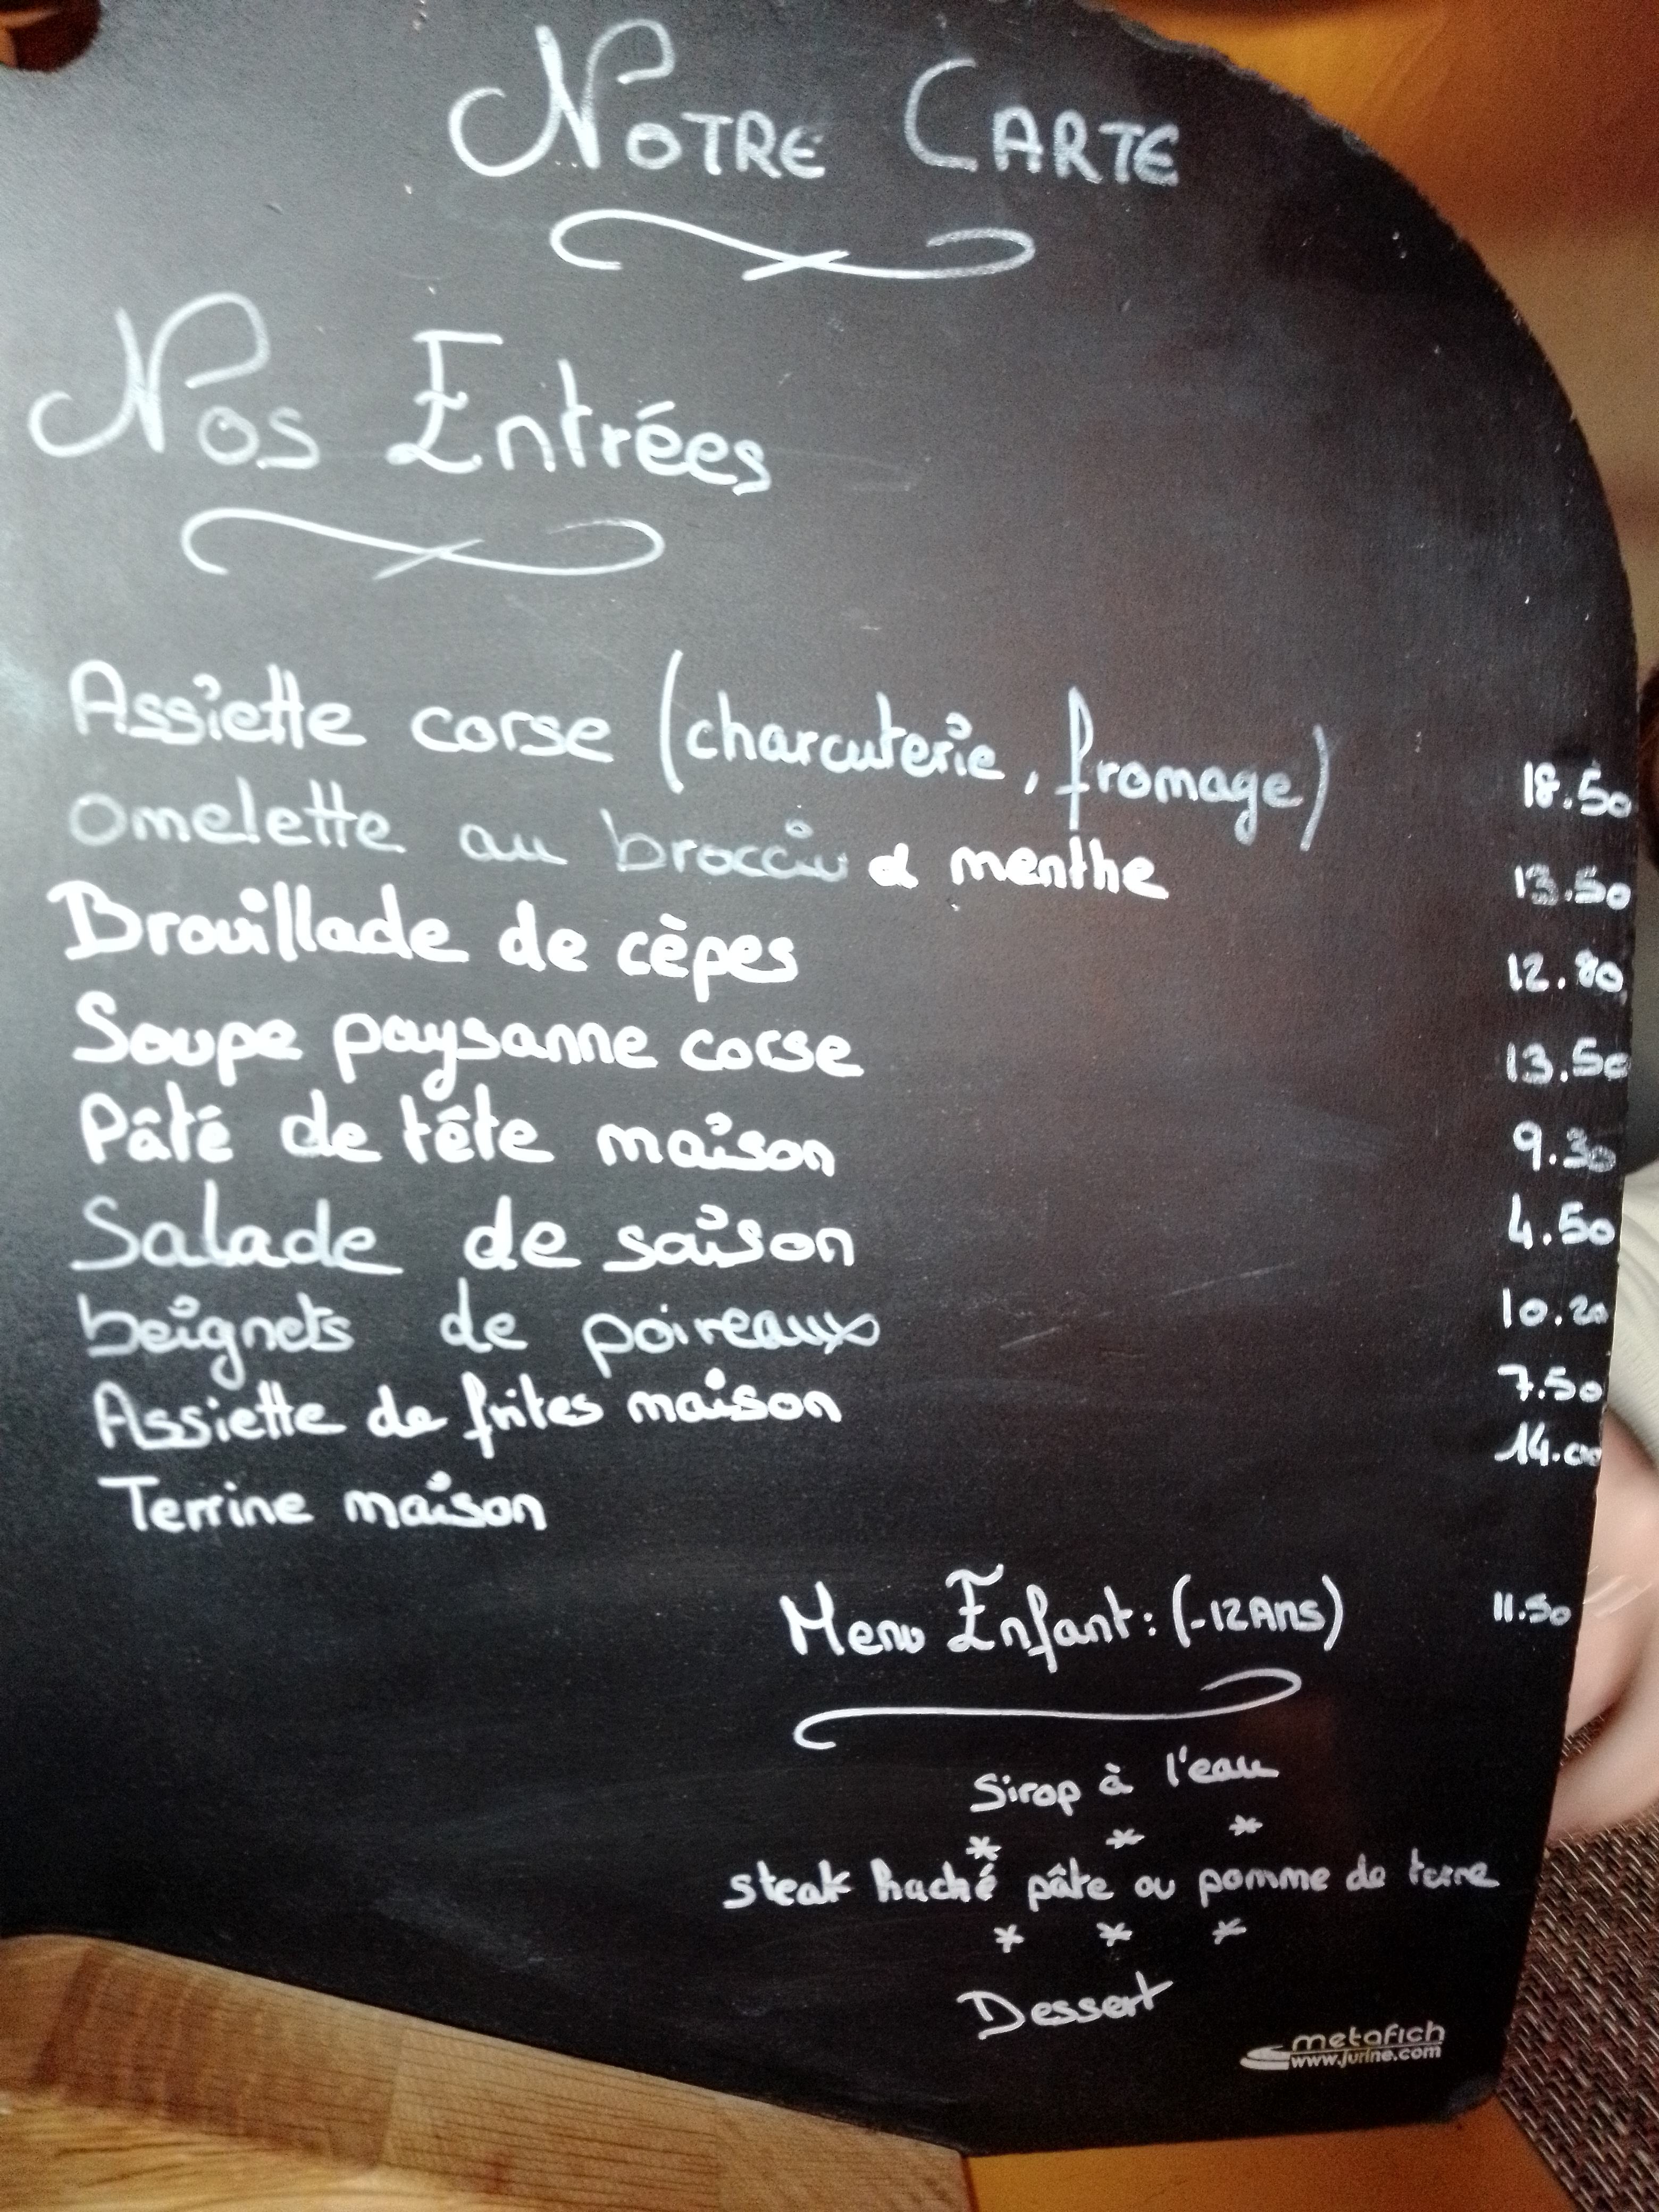 NOTRE CARTE
Nos Entrées
Assiette corse (charcuterie, fromage) 18.50
omelette au brocciu et menthe 13.50
Brouillade de cèpes 12.80
Soupe paysanne corse 13.50
Pâté de tête maison 9.30
Salade de saison 4.50
beignets de poireaux 10.20
Assiette de frites maison 7.50
Terrine maison 14.00
Menu Enfant: (-12Ans) 11.50
Sirop à l'eau
* * *
steak haché pâte ou pomme de terre
* * *
Dessert
metafich
www.jurine.com